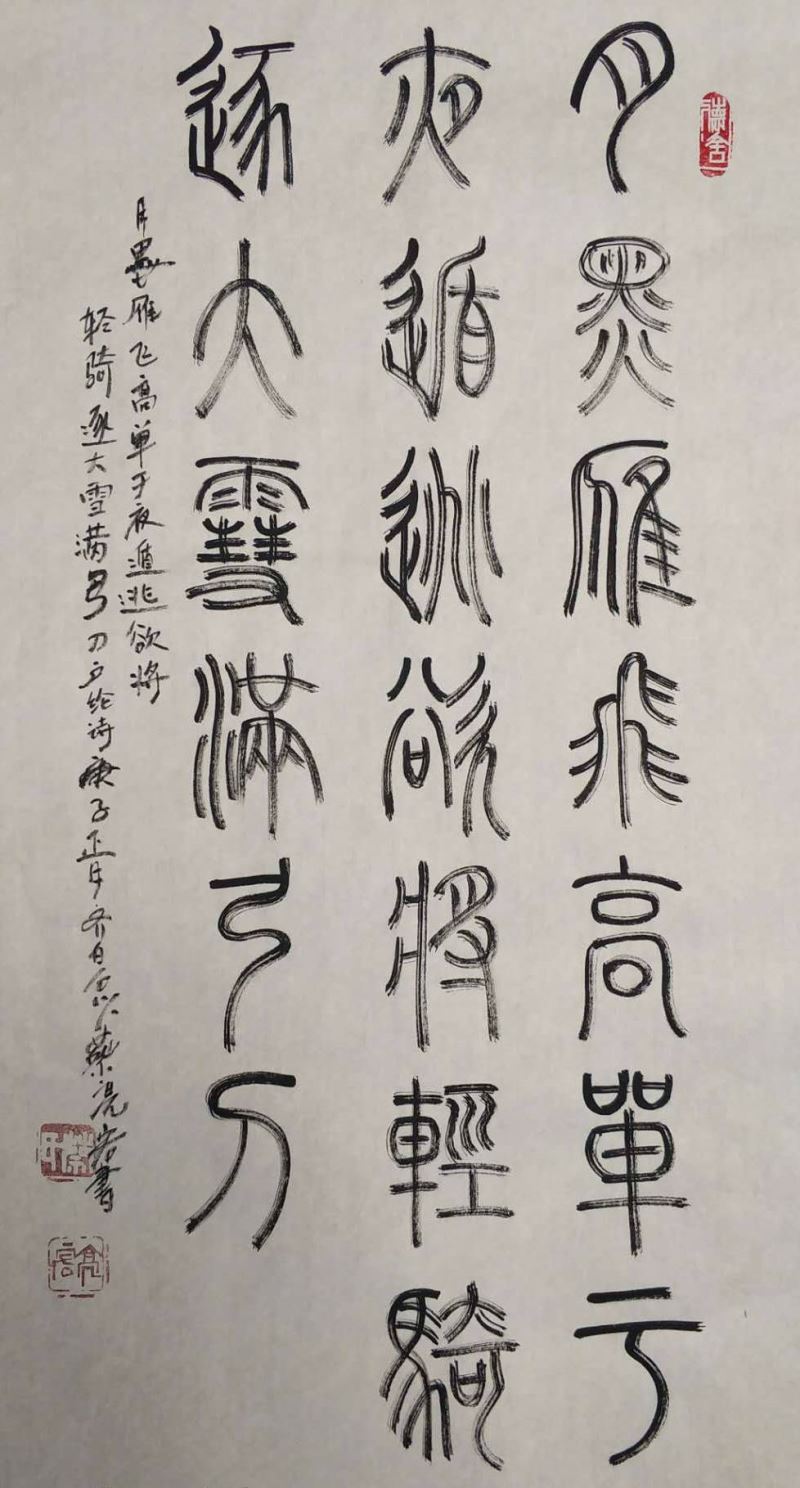 月黑雁飛高單于
夜遁逃欲將輕騎
逐大雪滿弓刀
月黑雁飞高单于夜遁逃欲将
轻骑逐大雪满弓刀卢纶诗庚子正月書